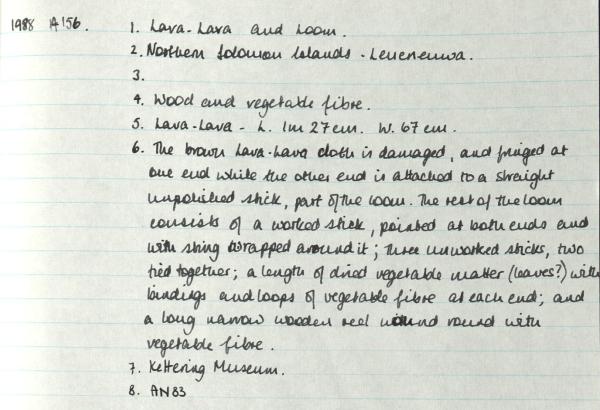 1988 A156. 1. Lava-Lava and Loom.
2. Northern Solomon Islands - Leueneuwa.
3.
4. Wood and vegetable fibre.
5. Lava-Lava - L. 1m 27cm. W. 67cm.
6. The brown Lava-Lava cloth is damaged, and fringed at
one end while the other end is attached to a straight
unpolished stick, part of the loom. The rest of the loom
consists of a worked stick, pointed at both ends and
with string wrapped around it; three unworked sticks, two
tied together; a length of dried vegetable matter (leaves?) with
bindings and loops of vegetable fibre at each end; and
a long narrow wooden reel wound round with
vegetable fibre.
7. Kettering Museum.
8. AN83